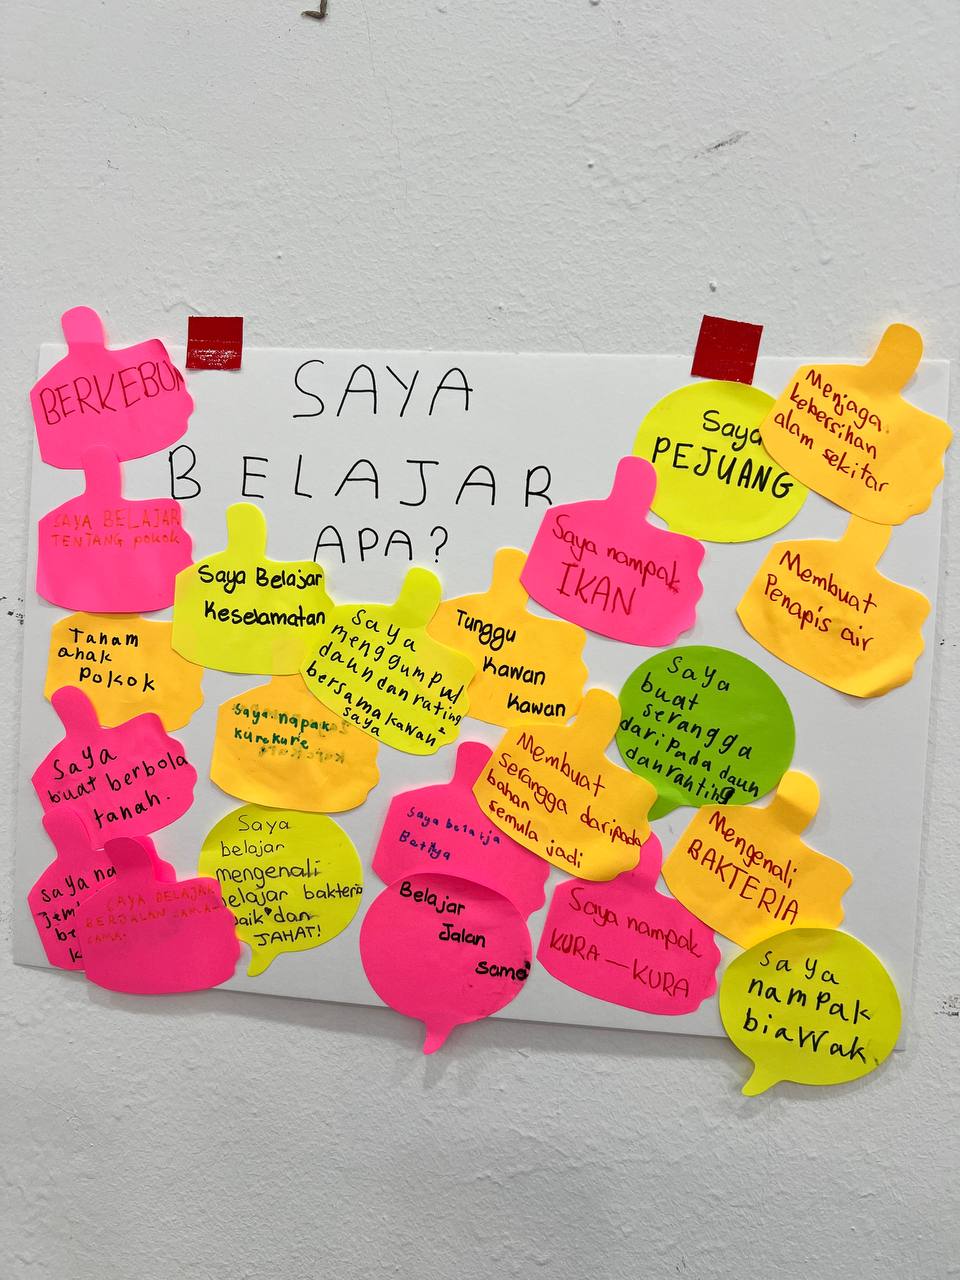 SAYA
BELAJAR
APA?
BERKEBUN
SAYA BELAJAR
TENTANG pokok
Tanam
anak
Pokok
Saya
buat berbola
tanah.
saya na
be
SAYA BELAJAR
BERJALAN SAMA-
SAMA.
Saya Belajar
Keselamatan
Saya napak
kurekure
Saya
belajar
mengenali
belajar bakteria
baik dan
JAHAT!
Saya
menggumpul
daun dan rating
bersama kawan²
saya
Tunggu
Kawan
Kawan
Saya nampak
IKAN
Saya
PEJUANG
Menjaga
kebersihan
alam sekitar
Membuat
Penapis air
Saya
buat
serangga
daripada daun
dan ranting
Membuat
serangga daripada
bahan
semula jadi
Saya
Belajar
Jalan
sama
Saya nampak
KURA-KURA
Mengenali
BAKTERIA
saya
nampak
biawak